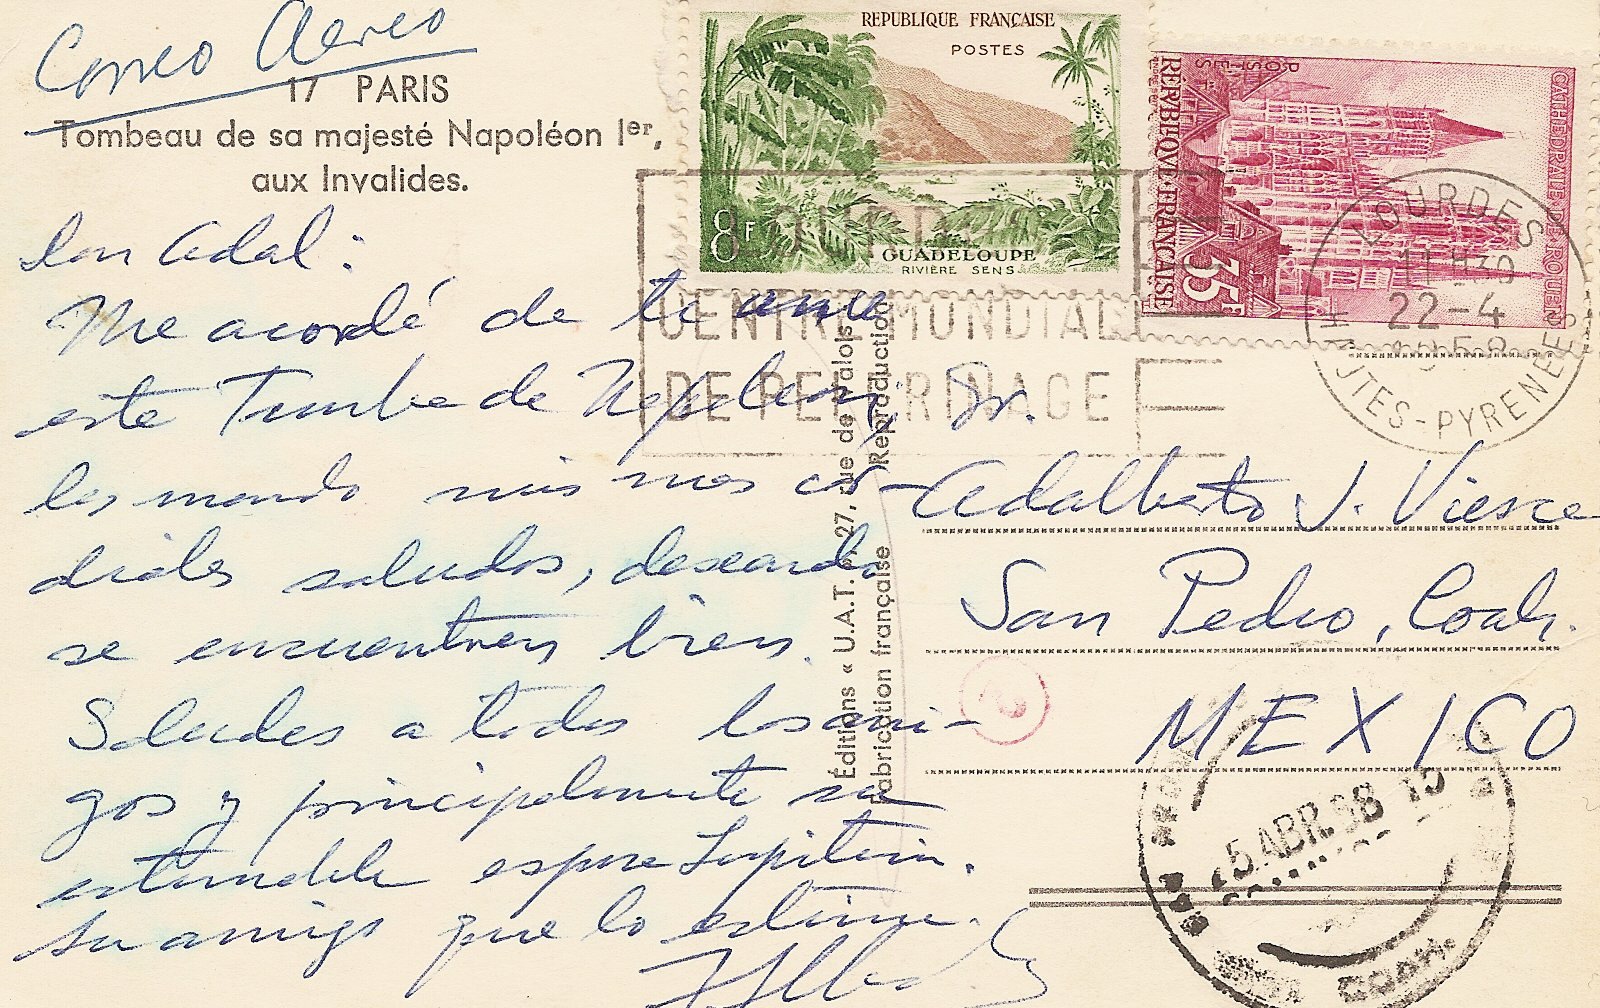 Correo Aereo
17 PARIS
Tombeau de sa majesté Napoléon Ier,
aux Invalides.
Don Adal:
Me acordé de
este Tumba de Napoleon,
les mando mis mas cor-
diales saludos, deseando
se encuentren bien.
Saludes a todos los ami-
gos y principalmente su
estimable espose Lupita
su amigo que lo estima.
REPUBLIQUE FRANÇAISE
POSTES
8F
GUADELOUPE
RIVIÈRE SENS
POSTES
RÉPUBLIQUE FRANÇAISE
35F
CATHÉDRALE DE ROUEN
LOURDES
CENTRE MONDIAL
DE PELERINAGE
LOURDES
11H30
22-4
1958
HAUTES-PYRENEES
Éditions « U.A.T. » 27, rue de Valois
Fabrication française Reproduction
Sr.
Adalberto J. Viesca
San Pedro, Coah.
MEXICO
25 ABR. 58 15
COAH.